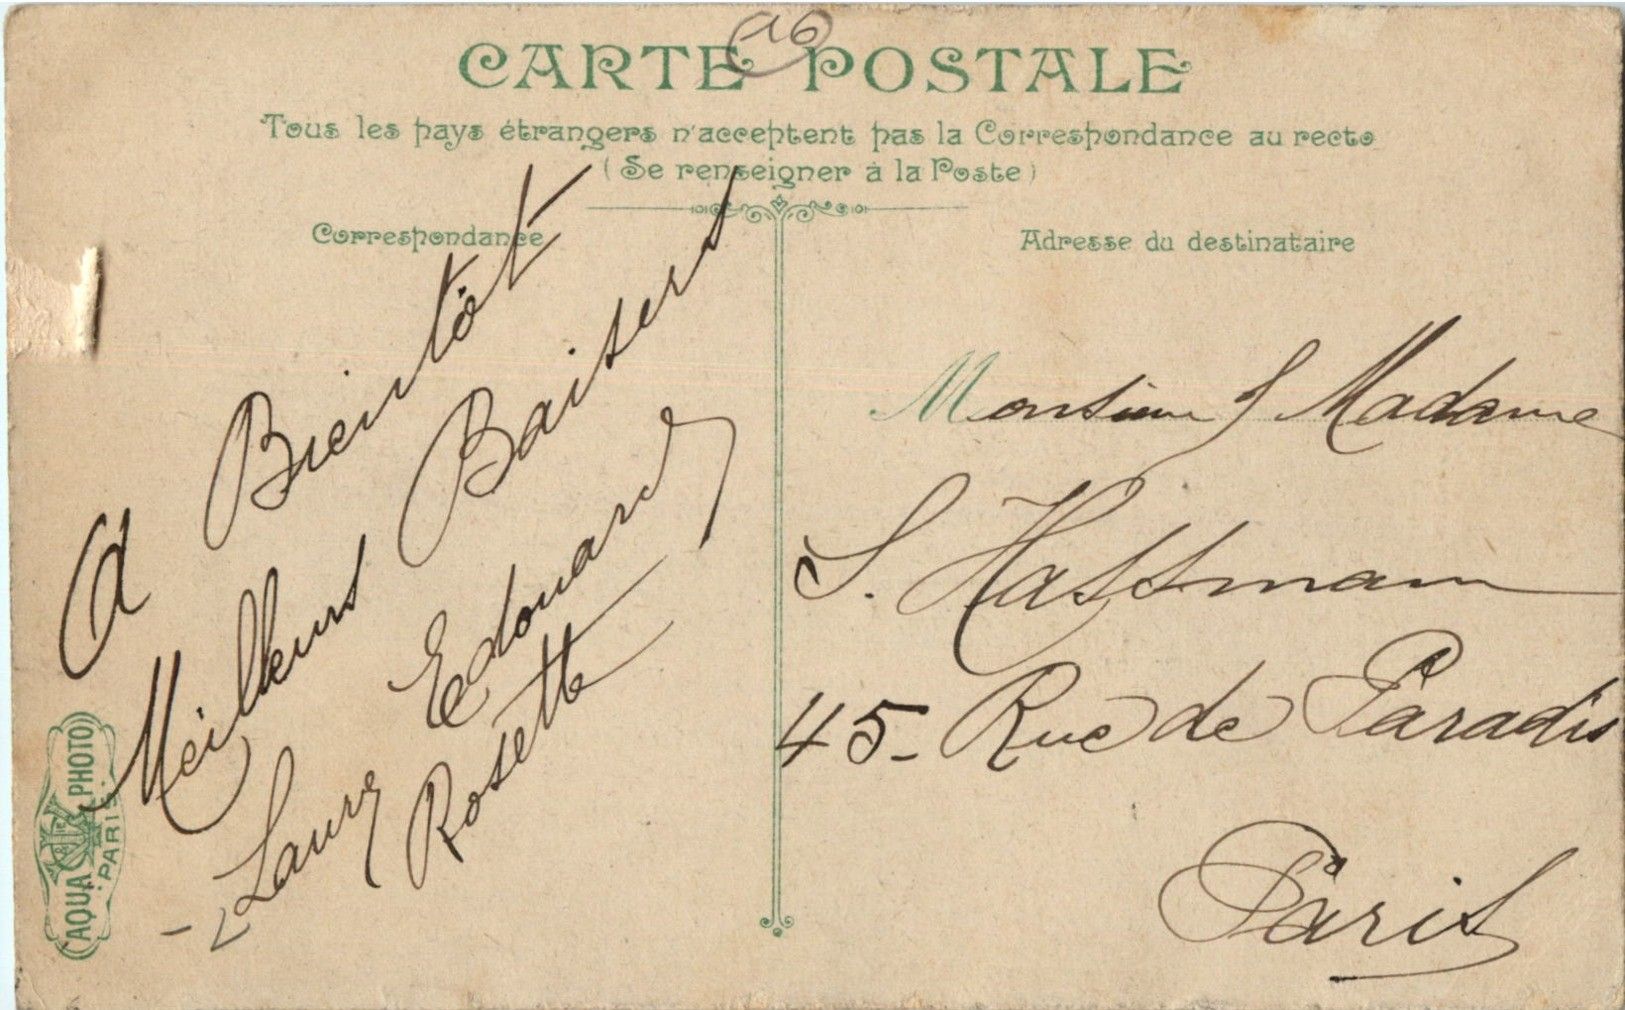 16
CARTE POSTALE
Tous les pays étrangers n'acceptent pas la Correspondance au recto
(Se renseigner à la Poste)
Correspondance
A Bientôt
Meilleurs Baisers
Edouard
Rosette
AQUA PHOTO
PARIS
Adresse du destinataire
Monsieur & Madame
S. Hassmann
45 - Rue de Paradis
Paris